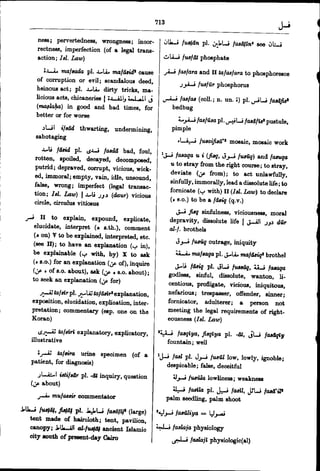 713
فسل
ness; pervertedness, wrongness; incor-
rectness, imperfection (of a legal trans-
action; Isl. Law)
مفسدة mafsada pl. مفاسد mafāsid² cause
of corruption or evil; scandalous deed,
heinous act; pl. مفاسد dirty tricks, ma-
licious acts, chicaneries |
(maṣlaḥa) in good and bad times, for
better or for worse
افساد ifsād thwarting, undermining,
sabotaging
فاسد fāsid pl. فسدى fasdā bad, foul,
rotten, spoiled, decayed, decomposed,
putrid; depraved, corrupt, vicious, wick-
ed, immoral; empty, vain, idle, unsound,
false, wrong; imperfect (legal transac-
tion; Isl. Law) | دور فاسد (daur) vicious
circle, circulus vitiosus
فسر II to explain, expound, explicate,
elucidate, interpret (ه s.th.), comment
(ه on) V to be explained, interpreted, etc.
(see II); to have an explanation (ب in),
be explainable (ب with, by) X to ask
(ه s.o.) for an explanation (عن of), inquire
(عن ه of s.o. about), ask (عن ه s.o. about);
to seek an explanation (عن for)
تفسير tafsīr pl. تفاسير tafāsīr² explanation,
exposition, elucidation, explication, inter-
pretation; commentary (esp. one on the
Koran)
تفسيرى tafsīrī explanatory, explicatory,
illustrative
تفسرة tafsira urine specimen (of a
patient, for diagnosis)
استفسار istifsār pl. -āt inquiry, question
(عن about)
مفسر mufassir commentator
فسطاط fusṭāṭ, fisṭāṭ pl. فساطيط fasāṭīṭ² (large)
tent made of haircloth; tent, pavilion,
canopy; الفسطاط al-fusṭāṭ ancient Islamic
city south of present-day Cairo
فستان fusṭān pl. فساتين fasāṭīn² see فستان
فسفات fusfāt phosphate
فسفر fasfara and II tafasfara to phosphoresce
فسفور fusfūr phosphorus
فسفس fasfas (coll.; n. un. ة) pl. فسافس fasāfis²
bedbug
فسفوسة fasfūsa pl. فسافيس fasāfīs² pustule,
pimple
فسيفساء fusaifisā'² mosaic, mosaic work
فسق fasaqa u i (fisq, فسوق fusūq) and fasuqa
u to stray from the right course; to stray,
deviate (عن from); to act unlawfully,
sinfully, immorally, lead a dissolute life; to
fornicate (ب with) II (Isl. Law) to declare
(ه s.o.) to be a fāsiq (q.v.)
فسق fisq sinfulness, viciousness, moral
depravity, dissolute life | دار الفسق dār
al-f. brothels
فسوق fusūq outrage, iniquity
مفسقة mafsaqa pl. مفاسق mafāsiq² brothel
فاسق fāsiq pl. فساق fussāq, فسقة fasaqa
godless, sinful, dissolute, wanton, li-
centious, profligate, vicious, iniquitous,
nefarious; trespasser, offender, sinner;
fornicator, adulterer; a person not
meeting the legal requirements of right-
eousness (Isl. Law)
فسقية fasqīya, fisqīya pl. -āt, فساقى fasāqīy
fountain; well
فسل fasl pl. فسول fusūl low, lowly, ignoble;
despicable; false, deceitful
فسولة fusūla lowliness; weakness
فسيلة fasīla pl. فسيل fasīl, فسائل fasā'il²
palm seedling, palm shoot
فسولوجيا fusūliya =
فسلجة faslaja physiology
فسلجى faslajī physiologic(al)